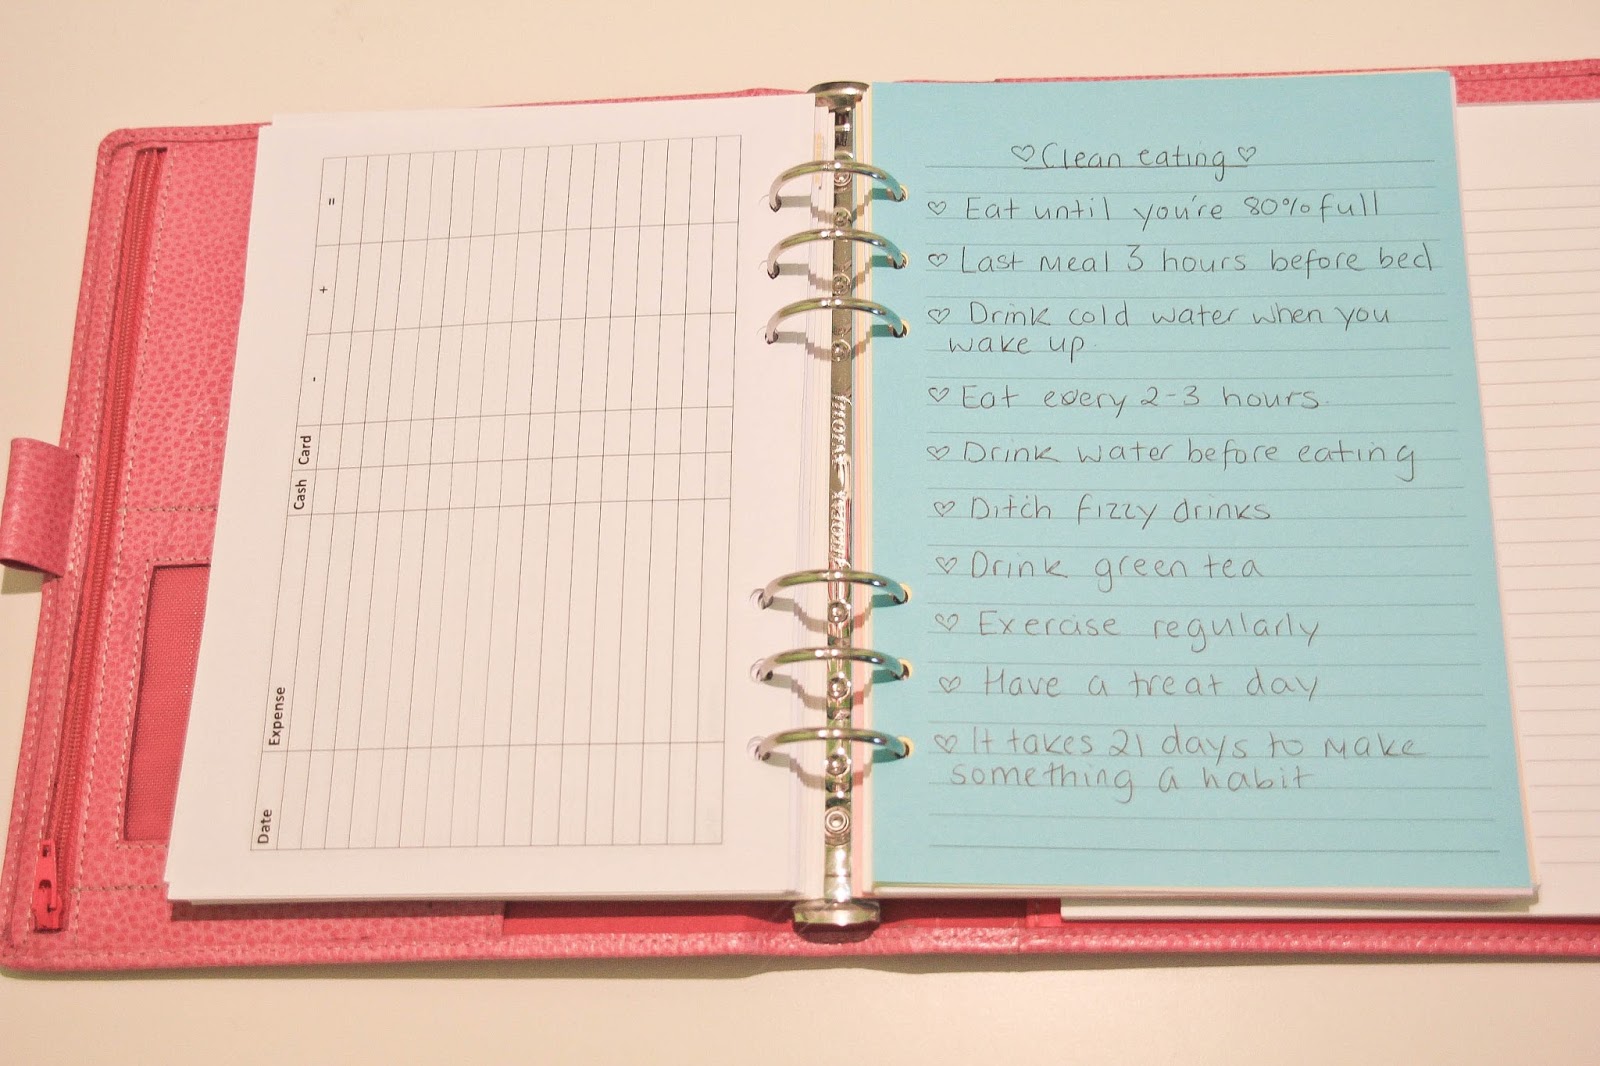 Date Expense Cash Card - + =
♡ Clean eating ♡
♡ Eat until you're 80% full
♡ Last meal 3 hours before bed
♡ Drink cold water when you
wake up.
♡ Eat every 2-3 hours.
♡ Drink water before eating
♡ Ditch fizzy drinks
♡ Drink green tea
♡ Exercise regularly
♡ Have a treat day
♡ It takes 21 days to make
something a habit